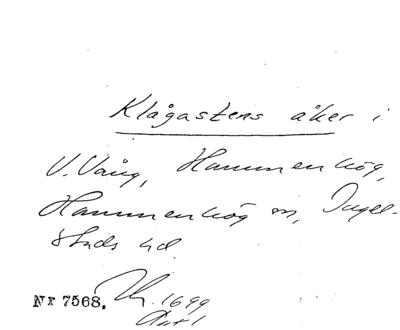 Klågastens åker i
V. Vång, Hammenhög,
Hammenhög sn, Ingel-
stads hd
Nr 7568. 1699